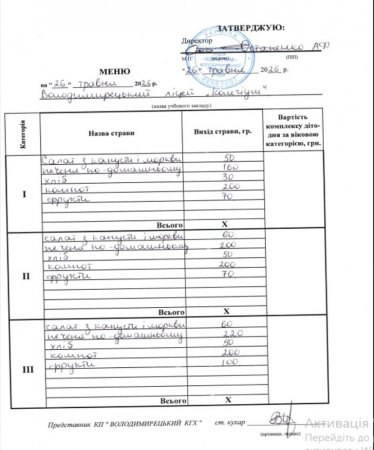 ЗАТВЕРДЖУЮ:
Директор
Остапенко
М.П. (ПІП)
МЕНЮ
"26" травня 2026р.
на "26" травня 2026р.
Володимирецький ліцей "Колегіум"
(назва учбового закладу)
Категорія Назва страви Вихід страви, гр. Вартість комплексу діто-дня за віковою категорією, грн.
I
салат з капусти і моркви 50
печеня по-домашньому 160
хліб 30
компот 200
фрукти 70
Всього X
II
салат з капусти і моркви 60
печеня по-домашньому 200
хліб 50
компот 200
фрукти 70
Всього X
III
салат з капусти і моркви 60
печеня по-домашньому 220
хліб 50
компот 200
фрукти 100
Всього X
Представник КП "ВОЛОДИМИРЕЦЬКИЙ КГХ" ст. кухар
Активація
Перейдіть до